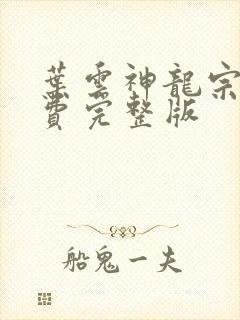 葉雲神龍宗
費完整版
船鬼一夫